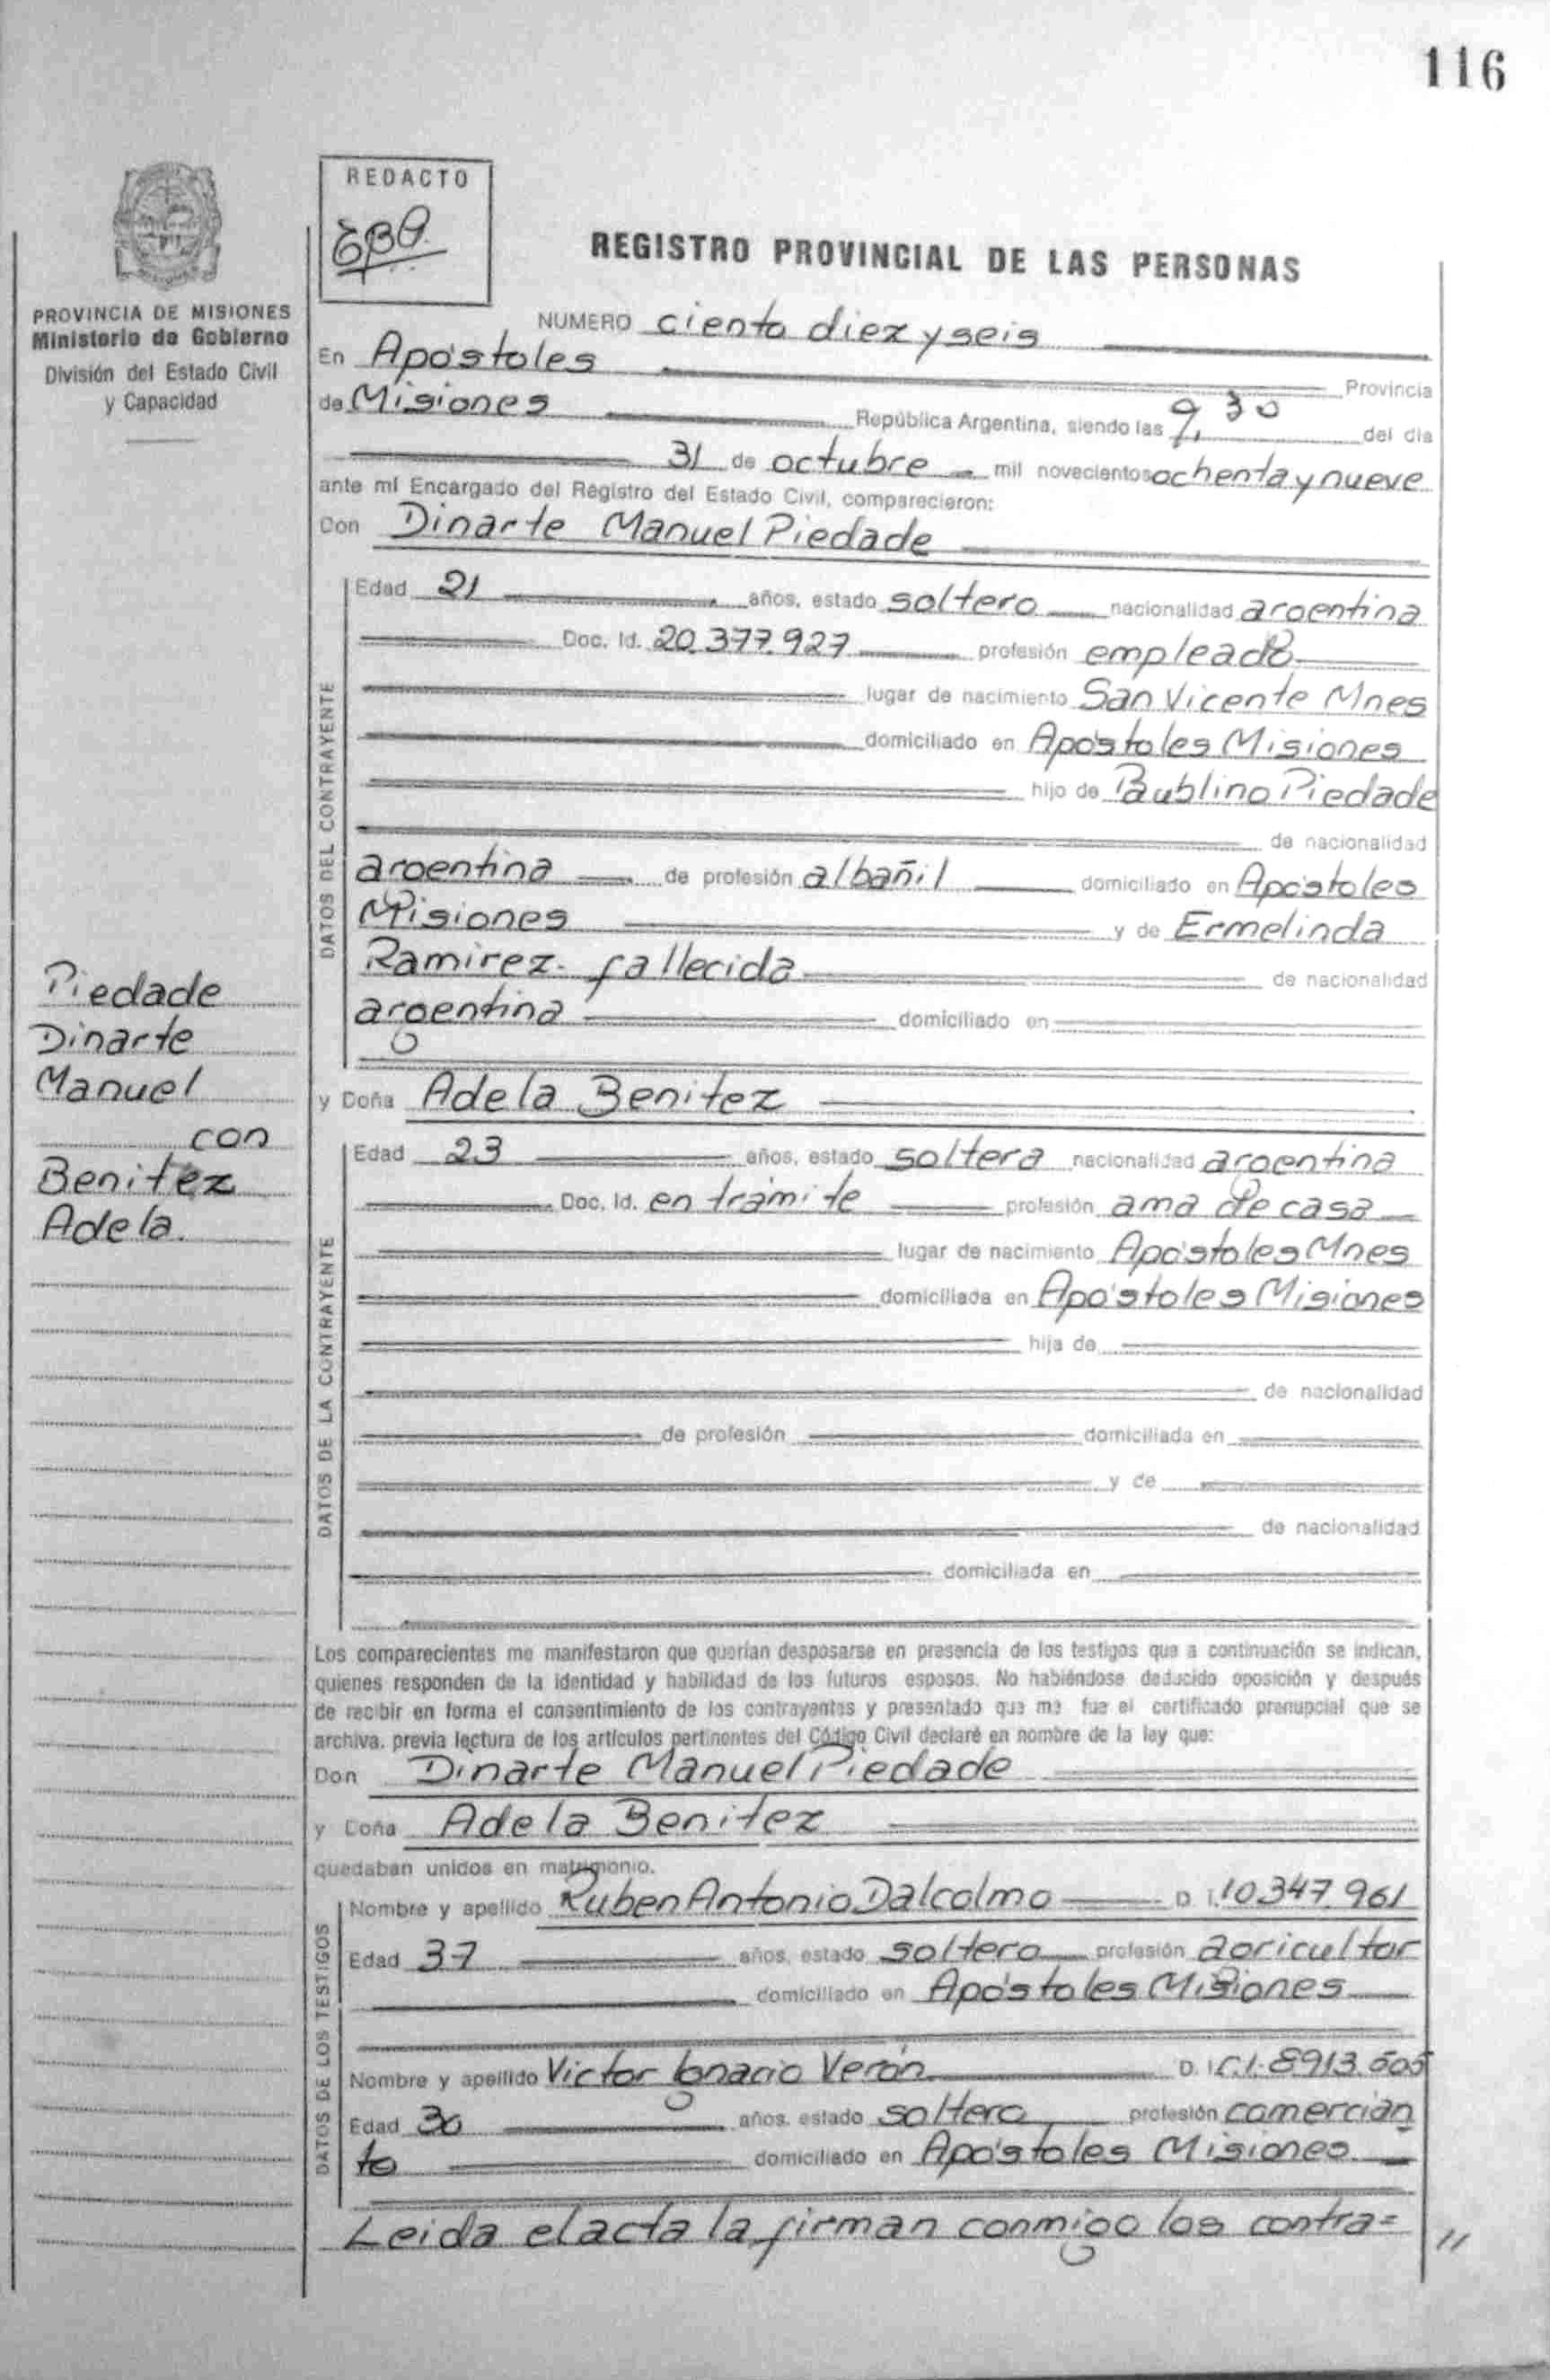 116
REDACTO
REGISTRO PROVINCIAL DE LAS PERSONAS
PROVINCIA DE MISIONES
Ministerio de Gobierno
División del Estado Civil
y Capacidad
NUMERO ciento diez y seis
En Apóstoles Provincia
de Misiones República Argentina, siendo las 9,30 del día
31 de octubre mil novecientos ochenta y nueve
ante mí Encargado del Registro del Estado Civil, comparecieron:
Don Dinarte Manuel Piedade
DATOS DEL CONTRAYENTE
Edad 21 años, estado soltero nacionalidad argentina
Doc. Id. 20.377.927 profesión empleado
lugar de nacimiento San Vicente Mnes
domiciliado en Apóstoles Misiones
hijo de Bublino Piedade
de nacionalidad
argentina de profesión albañil domiciliado en Apóstoles
Misiones y de Ermelinda
Ramirez. fallecida de nacionalidad
argentina domiciliado en
Piedade
Dinarte
Manuel
con
Benitez
Adela.
y Doña Adela Benitez
DATOS DE LA CONTRAYENTE
Edad 23 años, estado soltera nacionalidad argentina
Doc. Id. en trámite profesión ama de casa
lugar de nacimiento Apóstoles Mnes
domiciliada en Apóstoles Misiones
hija de
de nacionalidad
de profesión domiciliada en
y de
de nacionalidad
domiciliada en
Los comparecientes me manifestaron que querían desposarse en presencia de los testigos que a continuación se indican,
quienes responden de la identidad y habilidad de los futuros esposos. No habiéndose deducido oposición y después
de recibir en forma el consentimiento de los contrayentes y presentado que me fue el certificado prenupcial que se
archiva, previa lectura de los artículos pertinentes del Código Civil declaré en nombre de la ley que:
Don Dinarte Manuel Piedade
y Doña Adela Benitez
quedaban unidos en matrimonio.
DATOS DE LOS TESTIGOS
Nombre y apellido Ruben Antonio Dalcolmo D. I. 10.347.961
Edad 37 años, estado soltero profesión agricultor
domiciliado en Apóstoles Misiones
Nombre y apellido Victor Ignacio Verón D. I. C.I. 8913.505
Edad 30 años, estado soltero profesión comercian
te domiciliado en Apóstoles Misiones
Leida el acta la firman conmigo los contra= //